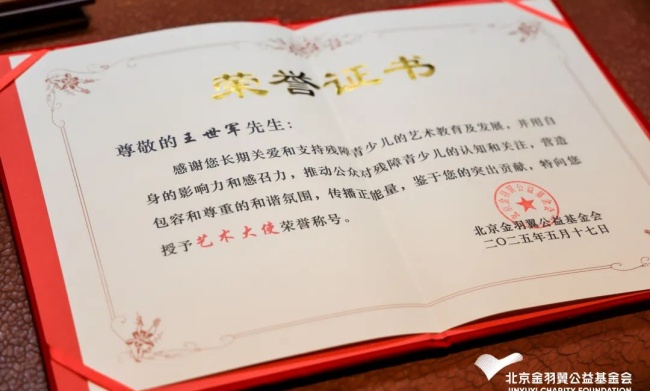 荣誉证书
尊敬的王世军先生：
感谢您长期关爱和支持残障青少儿的艺术教育及发展，并用自
身的影响力和感召力，推动公众对残障青少儿的认知和关注，营造
包容和尊重的和谐氛围，传播正能量，鉴于您的突出贡献，特向您
授予艺术大使荣誉称号。
北京金羽翼公益基金会
北京金羽翼公益基金会
二〇二五年五月十七日
北京金羽翼公益基金会
JINYUYI CHARITY FOUNDATION